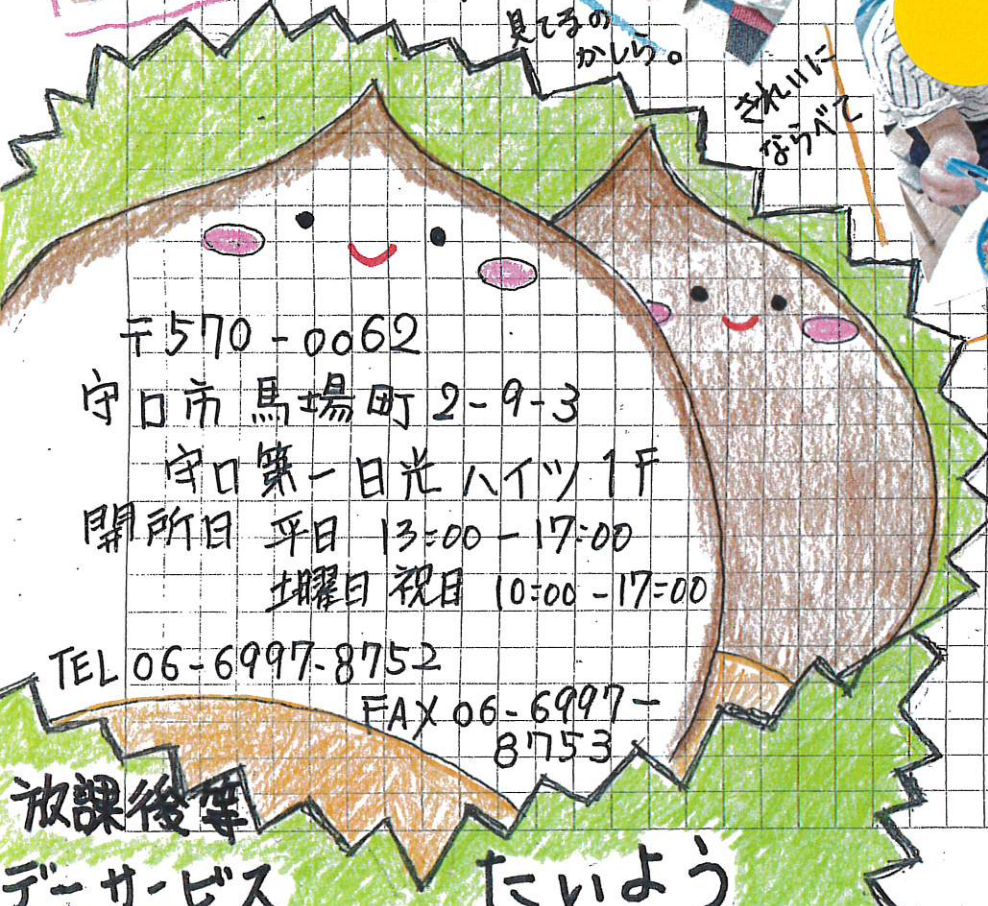 見てるの
かしら。
きれいに
ならべて
〒570-0062
守口市 馬場町 2-9-3
守口第一日光ハイツ1F
開所日 平日 13:00-17:00
土曜日 祝日 10:00-17:00
TEL 06-6997-8752
FAX 06-6997-
8753
放課後等
デーサービス たいよう